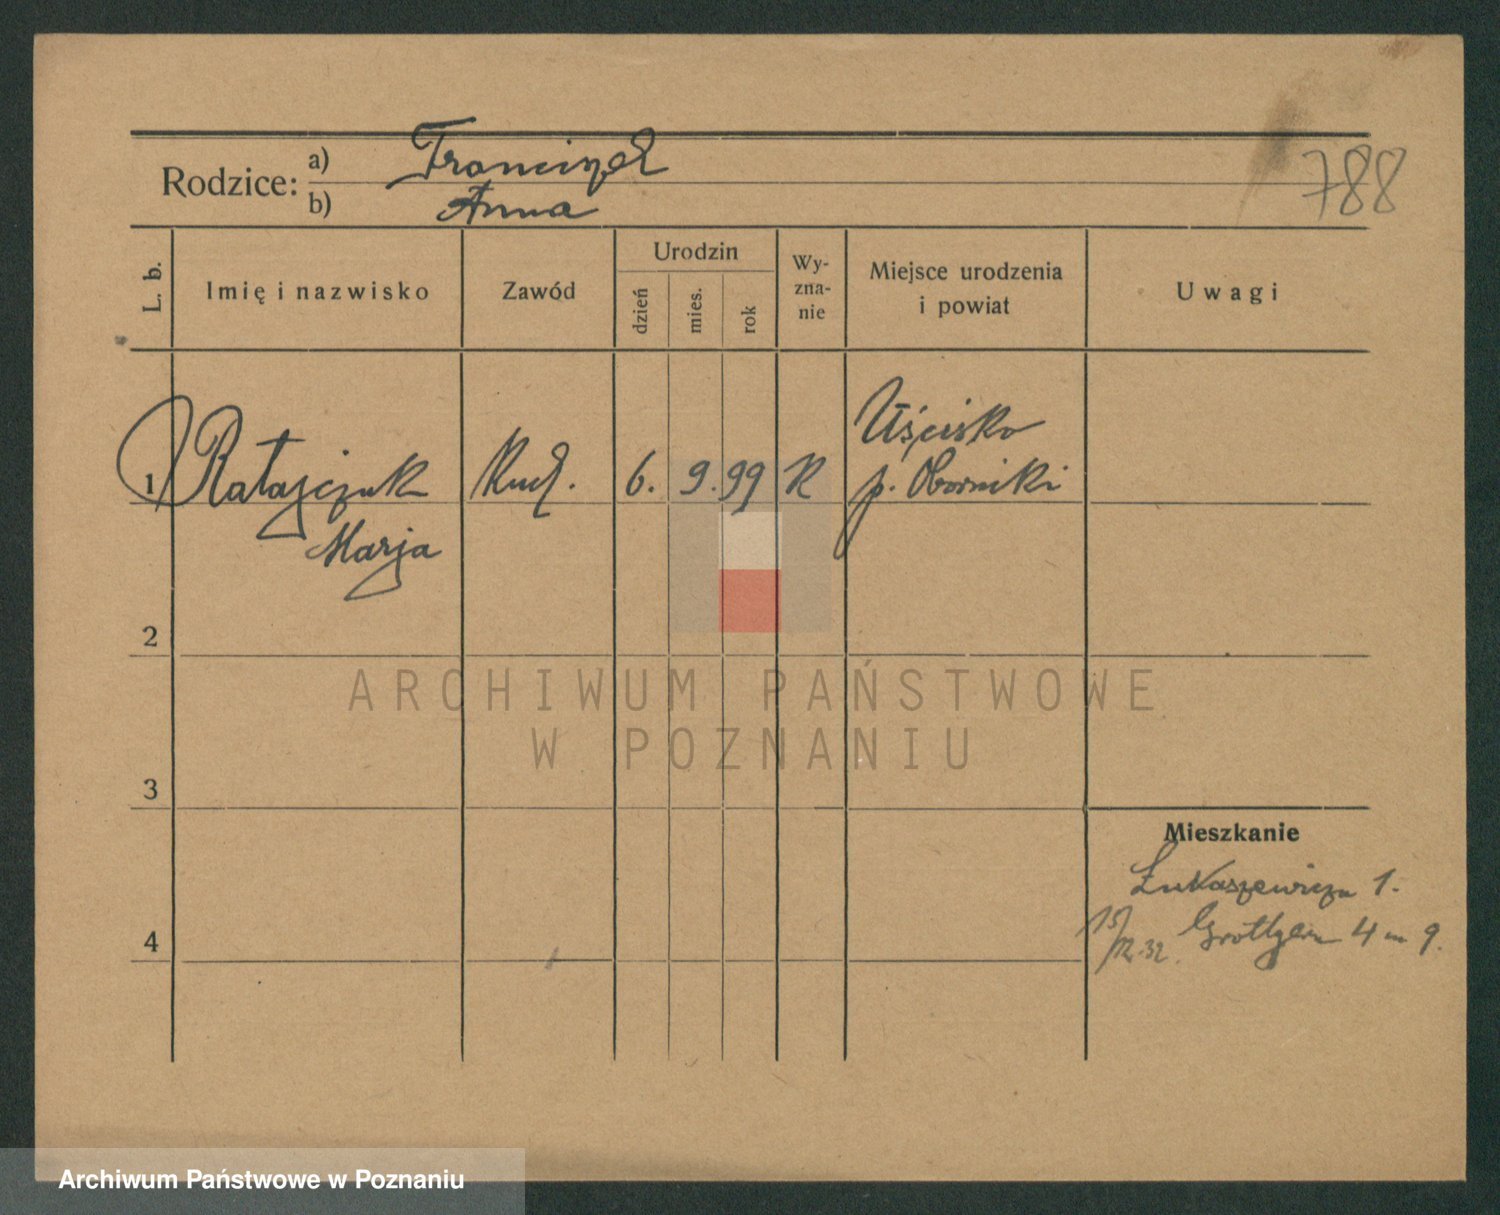 788
Rodzice:
a) Franciszek
b) Anna
L. b.
Imię i nazwisko
Zawód
Urodzin
dzień
mies.
rok
Wy-
zna-
nie
Miejsce urodzenia
i powiat
Uwagi
1 Ratajczak
Marja
6. 9. 99 R
Uścisko
p. Oborniki
2
3
4
Mieszkanie
Łukaszewicza 1.
15/12.32. Grottgera 4 m 9.
ARCHIWUM PAŃSTWOWE
W POZNANIU
Archiwum Państwowe w Poznaniu